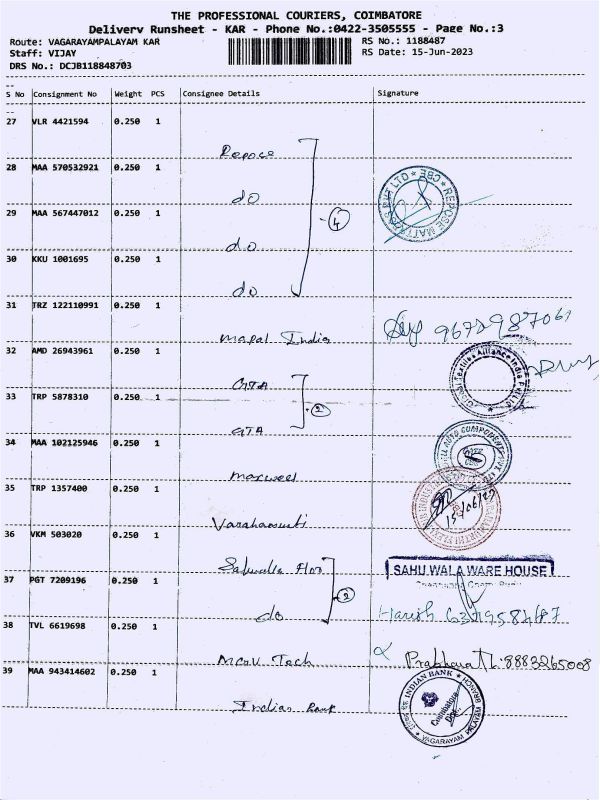 THE PROFESSIONAL COURIERS, COIMBATORE
Delivery Runsheet - KAR - Phone No.:0422-3505555 - Page No.:3
Route: VAGARAYAMPALAYAM KAR
RS No.: 1188487
Staff: VIJAY
RS Date: 15-Jun-2023
DRS No.: DCJB118848703
S No Consignment No Weight PCS Consignee Details Signature
27 VLR 4421594 0.250 1
Repose
28 MAA 570532921 0.250 1
do
REPOSE MATTRESS PVT LTD * CBE *
29 MAA 567447012 0.250 1
④
do
30 KKU 1001695 0.250 1
do
31 TRZ 122110991 0.250 1
Mapal India
32 AMD 26943961 0.250 1
GTA
Global Textile Alliance India Pvt Ltd
33 TRP 5878310 0.250 1
②
GTA
34 MAA 102125946 0.250 1
Maxwell
AUTO COMPONENTS
35 TRP 1357400 0.250 1
15/06/23
36 VKM 503020 0.250 1
SAHUWALA WARE HOUSE
37 PGT 7209196 0.250 1
②
do
Harish
38 TVL 6619698 0.250 1
Tech
8883265008
39 MAA 943414602 0.250 1
Indian Bank
INDIAN BANK
Coimbatore
VAGARAYAM PALAYAM BRANCH